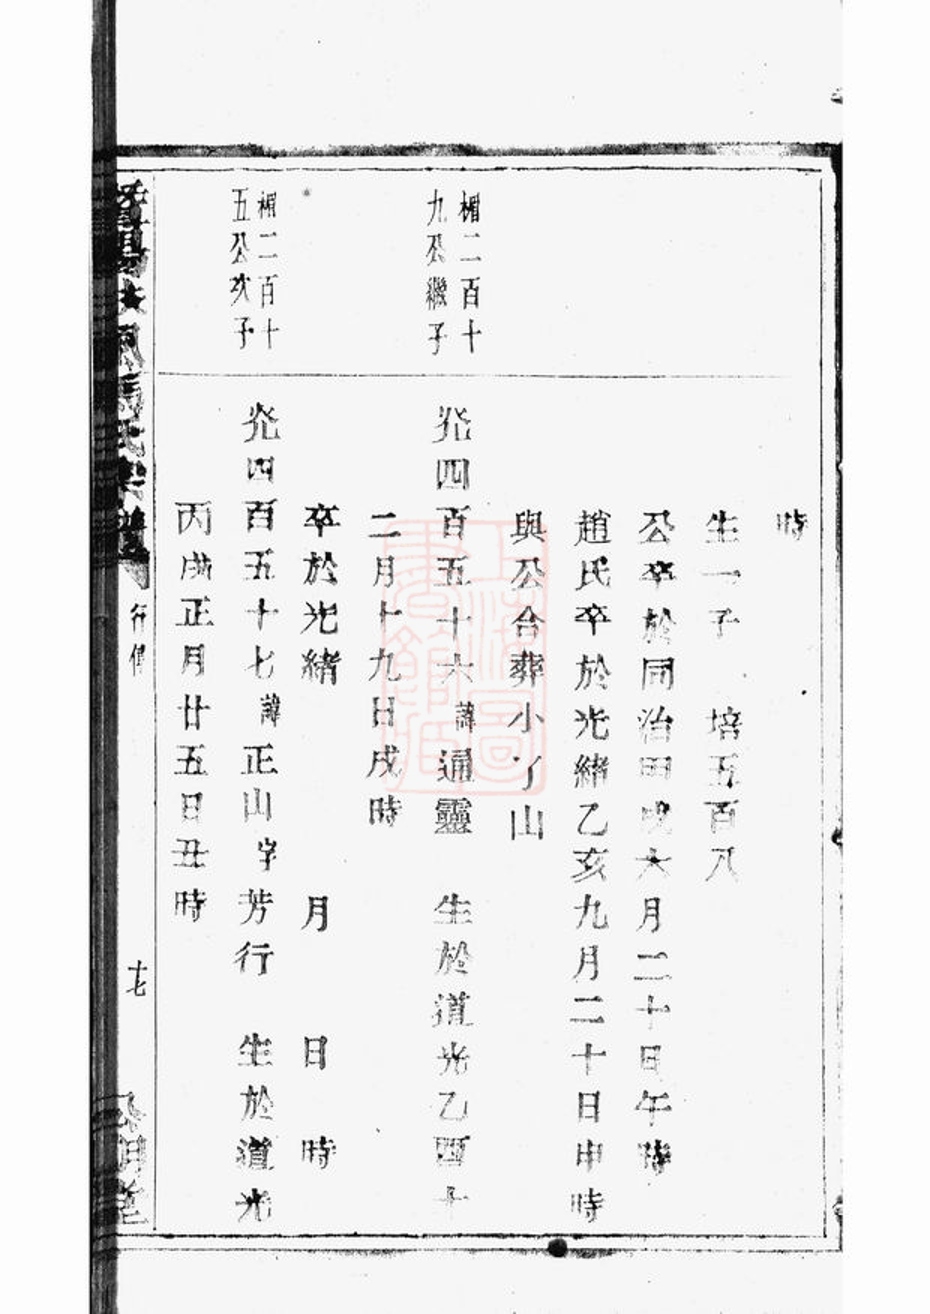 時
生一子 培五百八
公卒於同治甲戌六月二十日午時
趙氏卒於光緒乙亥九月二十日申時
與公合葬小了山
楣二百十
九公繼子
烍四百五十六諱通靈 生於道光乙酉十
二月十九日戌時
卒於光緒 月 日 時
楣二百十
五公次子
烍四百五十七諱正山字芳行 生於道光
丙戌正月廿五日丑時
馬氏宗譜
行傳
十七
上海圖書館藏